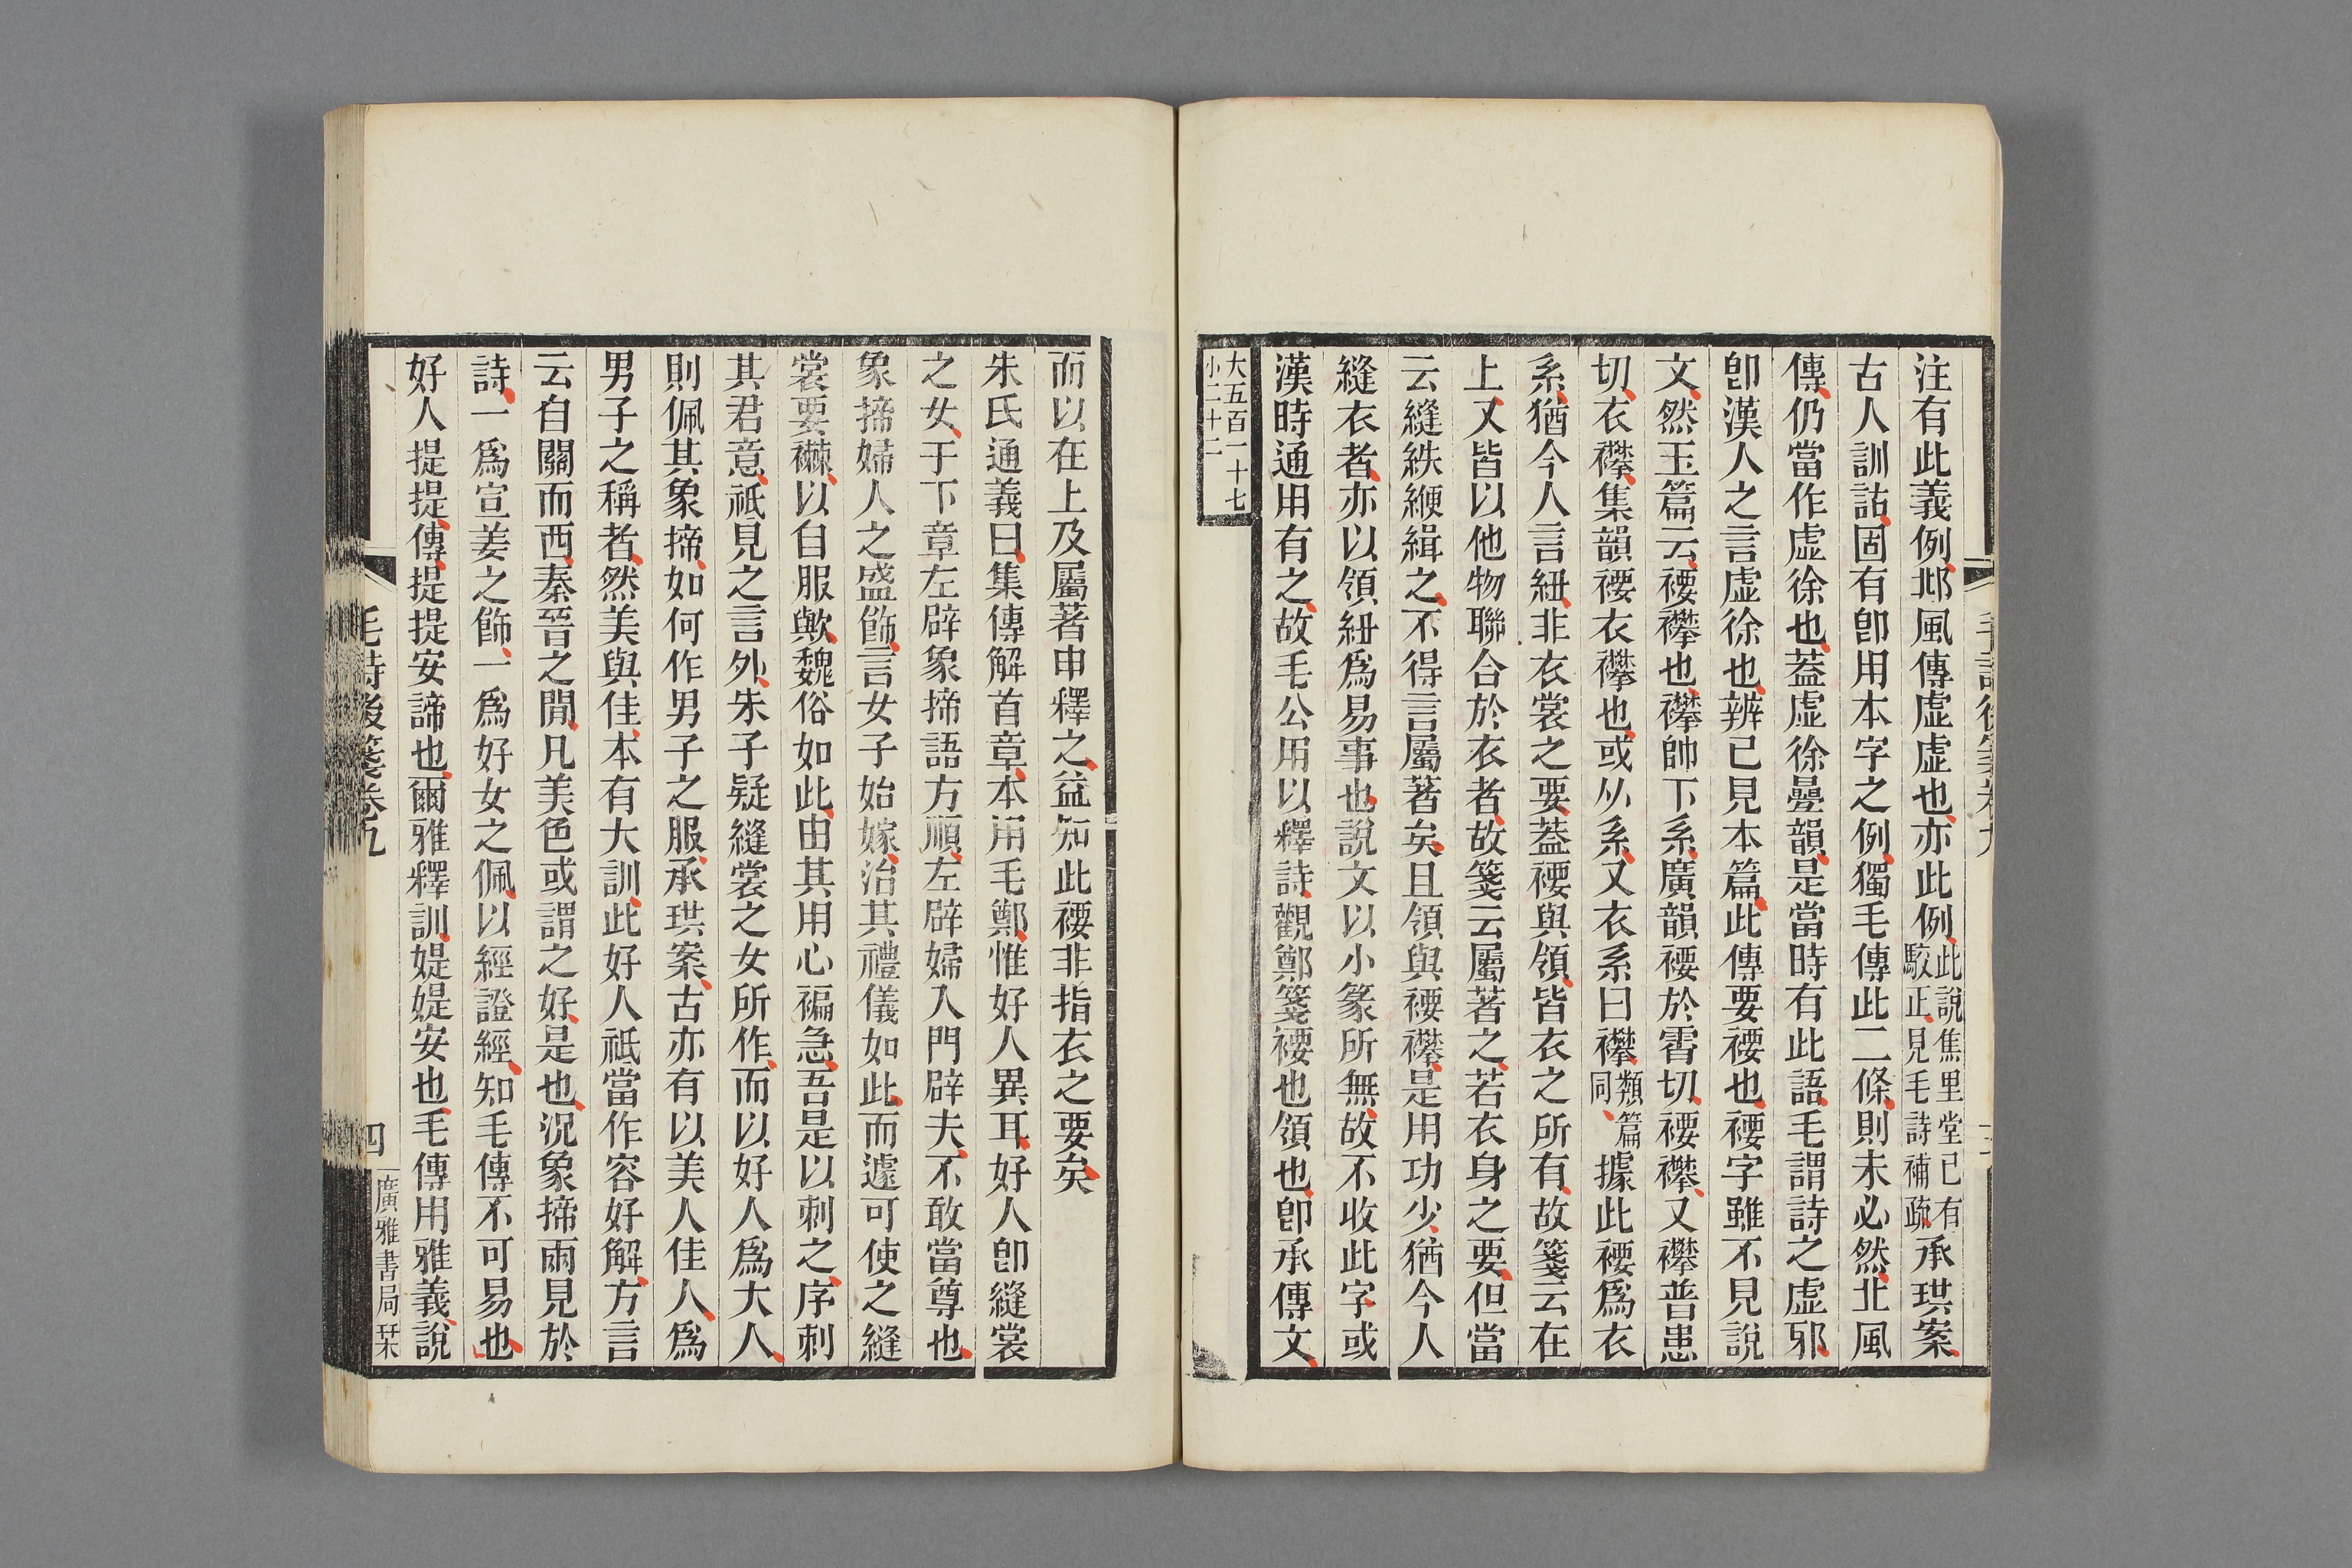 注有此義例邶風傳虛虛也亦此例此說焦里堂已有駮正見毛詩補疏承珙案
古人訓詁固有卽用本字之例獨毛傳此二條則未必然北風
傳仍當作虛徐也葢虛徐曡韻是當時有此語毛謂詩之虛邪
卽漢人之言虛徐也辨已見本篇此傳要褄也褄字雖不見說
文然玉篇云褄襻也襻帥下系廣韻褄於霄切褄襻又襻普患
切衣襻集韻褄衣襻也或从系又衣系曰襻類篇同據此褄爲衣
系猶今人言紐非衣裳之要葢褄與領皆衣之所有故箋云在
上又皆以他物聯合於衣者故箋云屬著之若衣身之要但當
云縫紩緶緝之不得言屬著矣且領與褄襻是用功少猶今人
縫衣者亦以領紐爲易事也說文以小篆所無故不收此字或
漢時通用有之故毛公用以釋詩觀鄭箋褄也領也卽承傳文
大五百一十七
小二十二
而以在上及屬著申釋之益知此褄非指衣之要矣
朱氏通義曰集傳解首章本用毛鄭惟好人異耳好人卽縫裳
之女于下章左辟象揥語方順左辟婦入門辟夫不敢當尊也
象揥婦人之盛飾言女子始嫁治其禮儀如此而遽可使之縫
裳要襋以自服歟魏俗如此由其用心褊急吾是以刺之序刺
其君意祇見之言外朱子疑縫裳之女所作而以好人爲大人
則佩其象揥如何作男子之服承珙案古亦有以美人佳人爲
男子之稱者然美與佳本有大訓此好人祇當作容好解方言
云自關而西秦晉之閒凡美色或謂之好是也況象揥兩見於
詩一爲宣姜之飾一爲好女之佩以經證經知毛傳不可易也
好人提提傳提提安諦也爾雅釋訓媞媞安也毛傳用雅義說
毛詩後箋卷九
四
廣雅書局栞